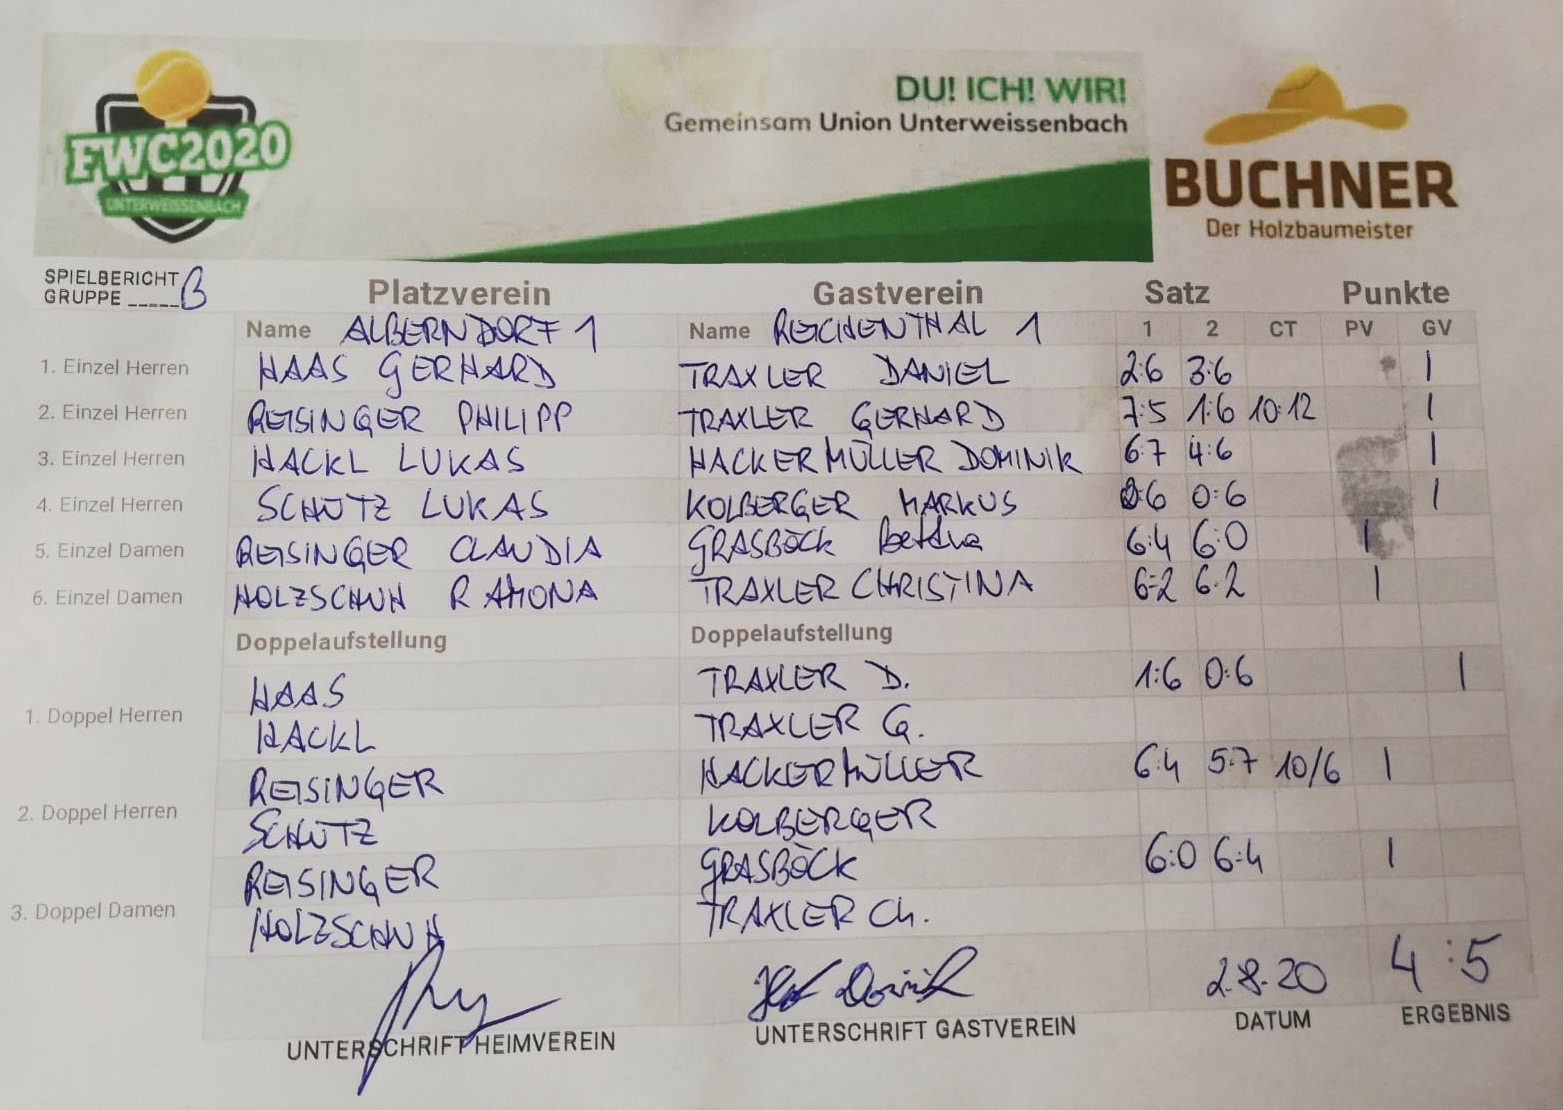 DU! ICH! WIR!
Gemeinsam Union Unterweissenbach
FWC2020
UNTERWEISSENBACH
BUCHNER
Der Holzbaumeister
SPIELBERICHT
GRUPPE _____ B
Platzverein Gastverein Satz Punkte
Name ALBERNDORF 1 Name REICHENTHAL 1 1 2 CT PV GV
1. Einzel Herren HAAS GERHARD TRAXLER DANIEL 2:6 3:6 1
2. Einzel Herren REISINGER PHILIPP TRAXLER GERHARD 7:5 1:6 10:12 1
3. Einzel Herren HACKL LUKAS HACKERMÜLLER DOMINIK 6:7 4:6 1
4. Einzel Herren SCHÜTZ LUKAS KOLBERGER MARKUS 0:6 0:6 1
5. Einzel Damen REISINGER CLAUDIA GRASBÖCK 6:4 6:0 1
6. Einzel Damen HOLZSCHUH RAMONA TRAXLER CHRISTINA 6:2 6:2 1
Doppelaufstellung Doppelaufstellung
1. Doppel Herren
HAAS TRAXLER D. 1:6 0:6 1
HACKL TRAXLER G.
2. Doppel Herren
REISINGER HACKERMÜLLER 6:4 5:7 10/6 1
SCHÜTZ KOLBERGER
3. Doppel Damen
REISINGER GRASBÖCK 6:0 6:4 1
HOLZSCHUH TRAXLER Ch.
2.8.20 4:5
UNTERSCHRIFT HEIMVEREIN UNTERSCHRIFT GASTVEREIN DATUM ERGEBNIS